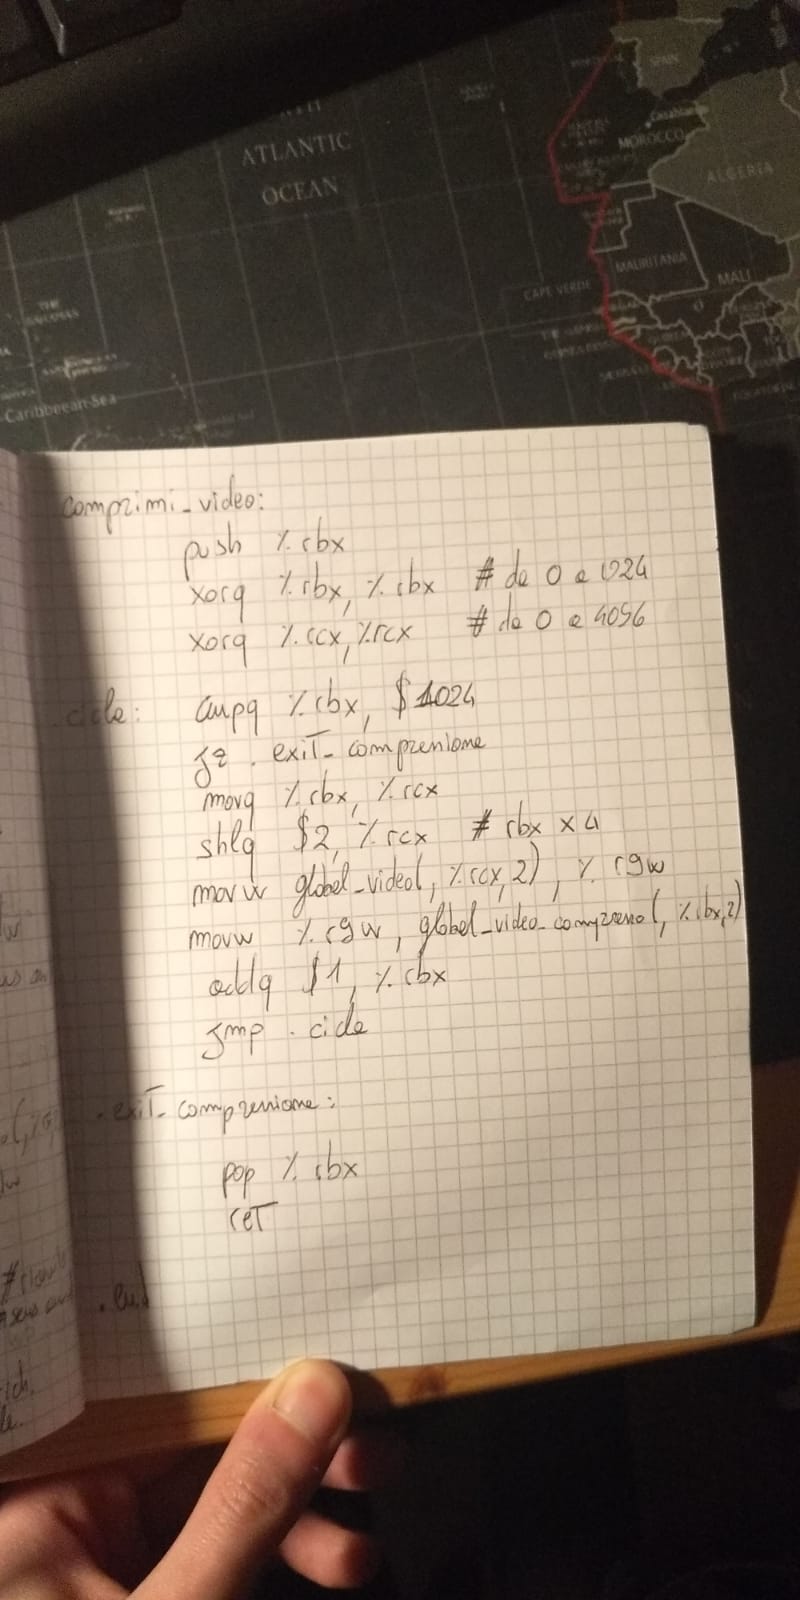 ATLANTIC
OCEAN
SPAIN
Casablanca
MOROCCO
ALGERIA
MAURITANIA
MALI
CAPE VERDE
Caribbean Sea
comprimi_video:
push %rbx
xorq %rbx, %rbx # da 0 a 1024
xorq %rcx, %rcx # da 0 a 4096
.ciclo: cmpq %rbx, $1024
jz .exit_compressione
movq %rbx, %rcx
shlq $2, %rcx # rbx x 4
movw global_video(, %rcx, 2), %r9w
movw %r9w, global_video_compresso(, %rbx, 2)
addq $1, %rbx
jmp .ciclo
.exit_compressione:
pop %rbx
ret
.end